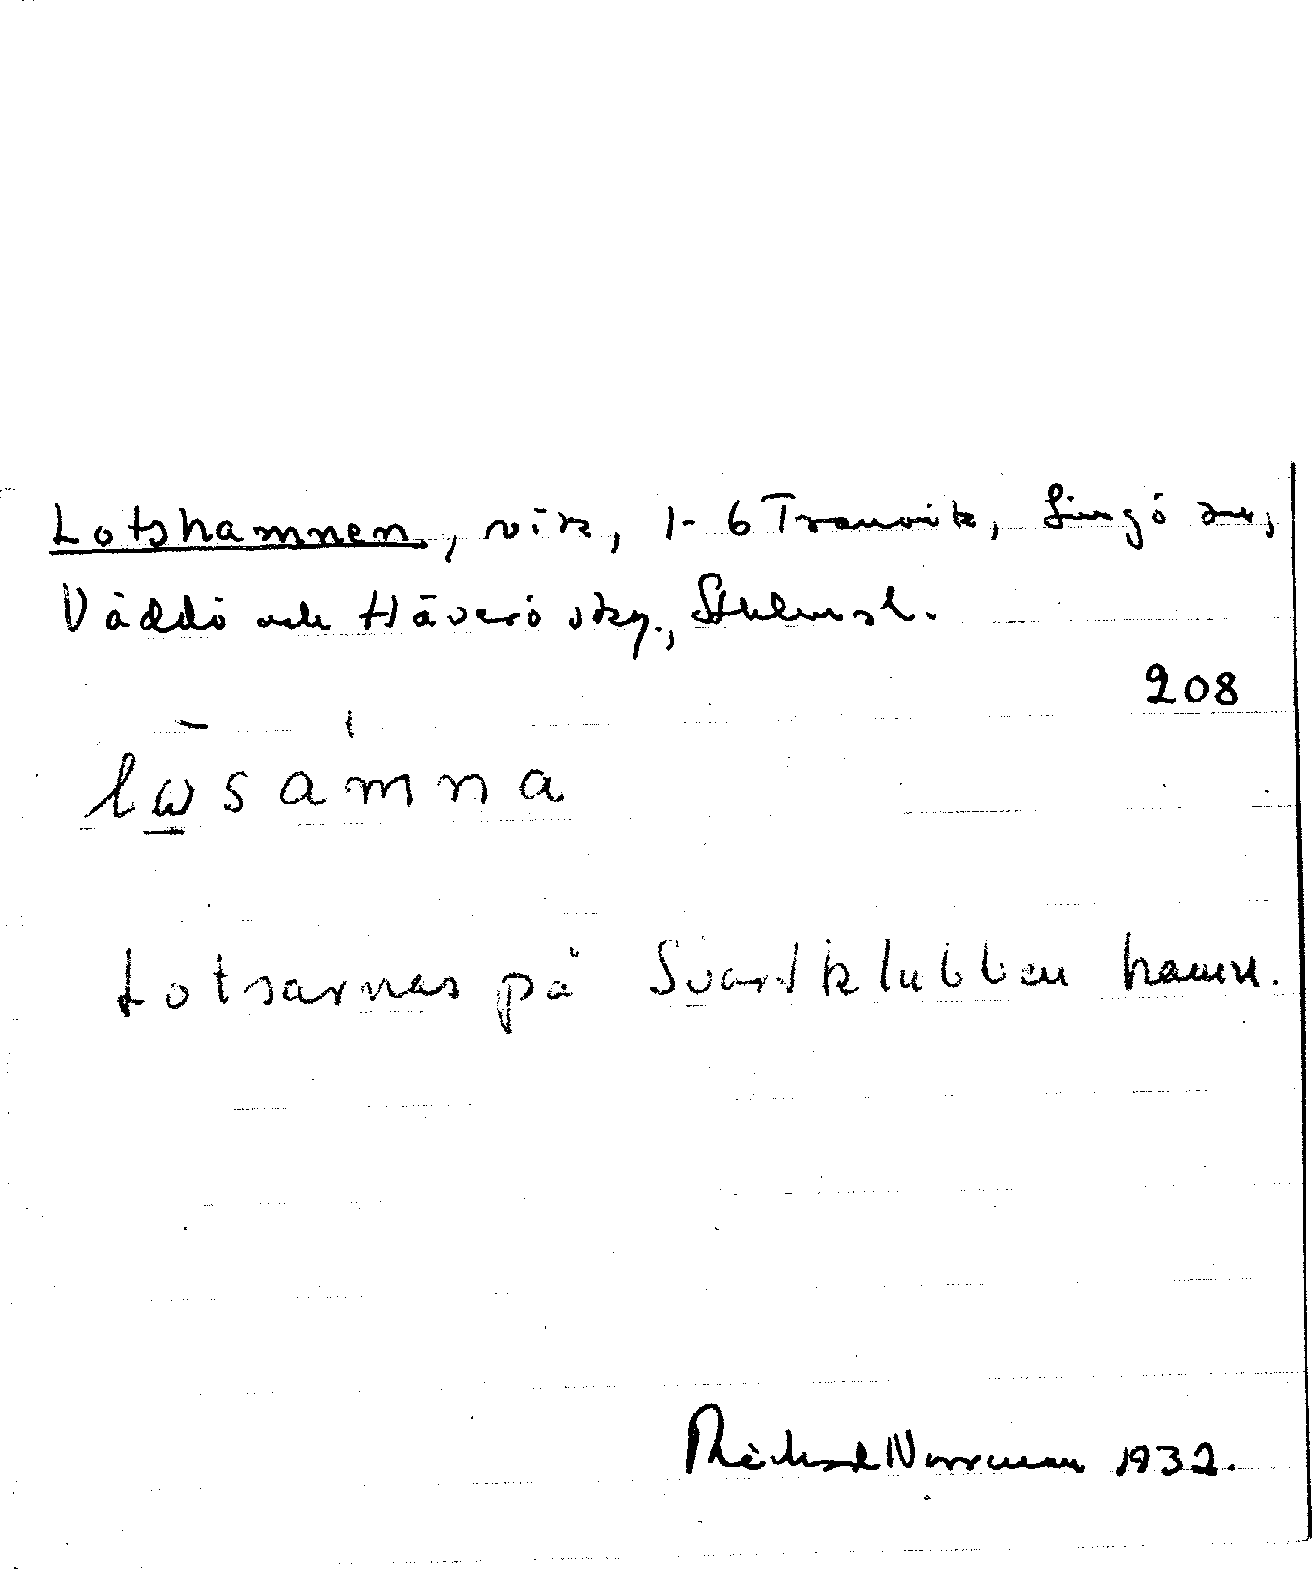 Lotshamnen, vik, 1-6 Tranvik, Singö sn,
Väddö och Häverö skg., Sthlms l.
208
lωsamna
Lotsarnas på Svartklubben hamn.
Richard Norrman 1932.